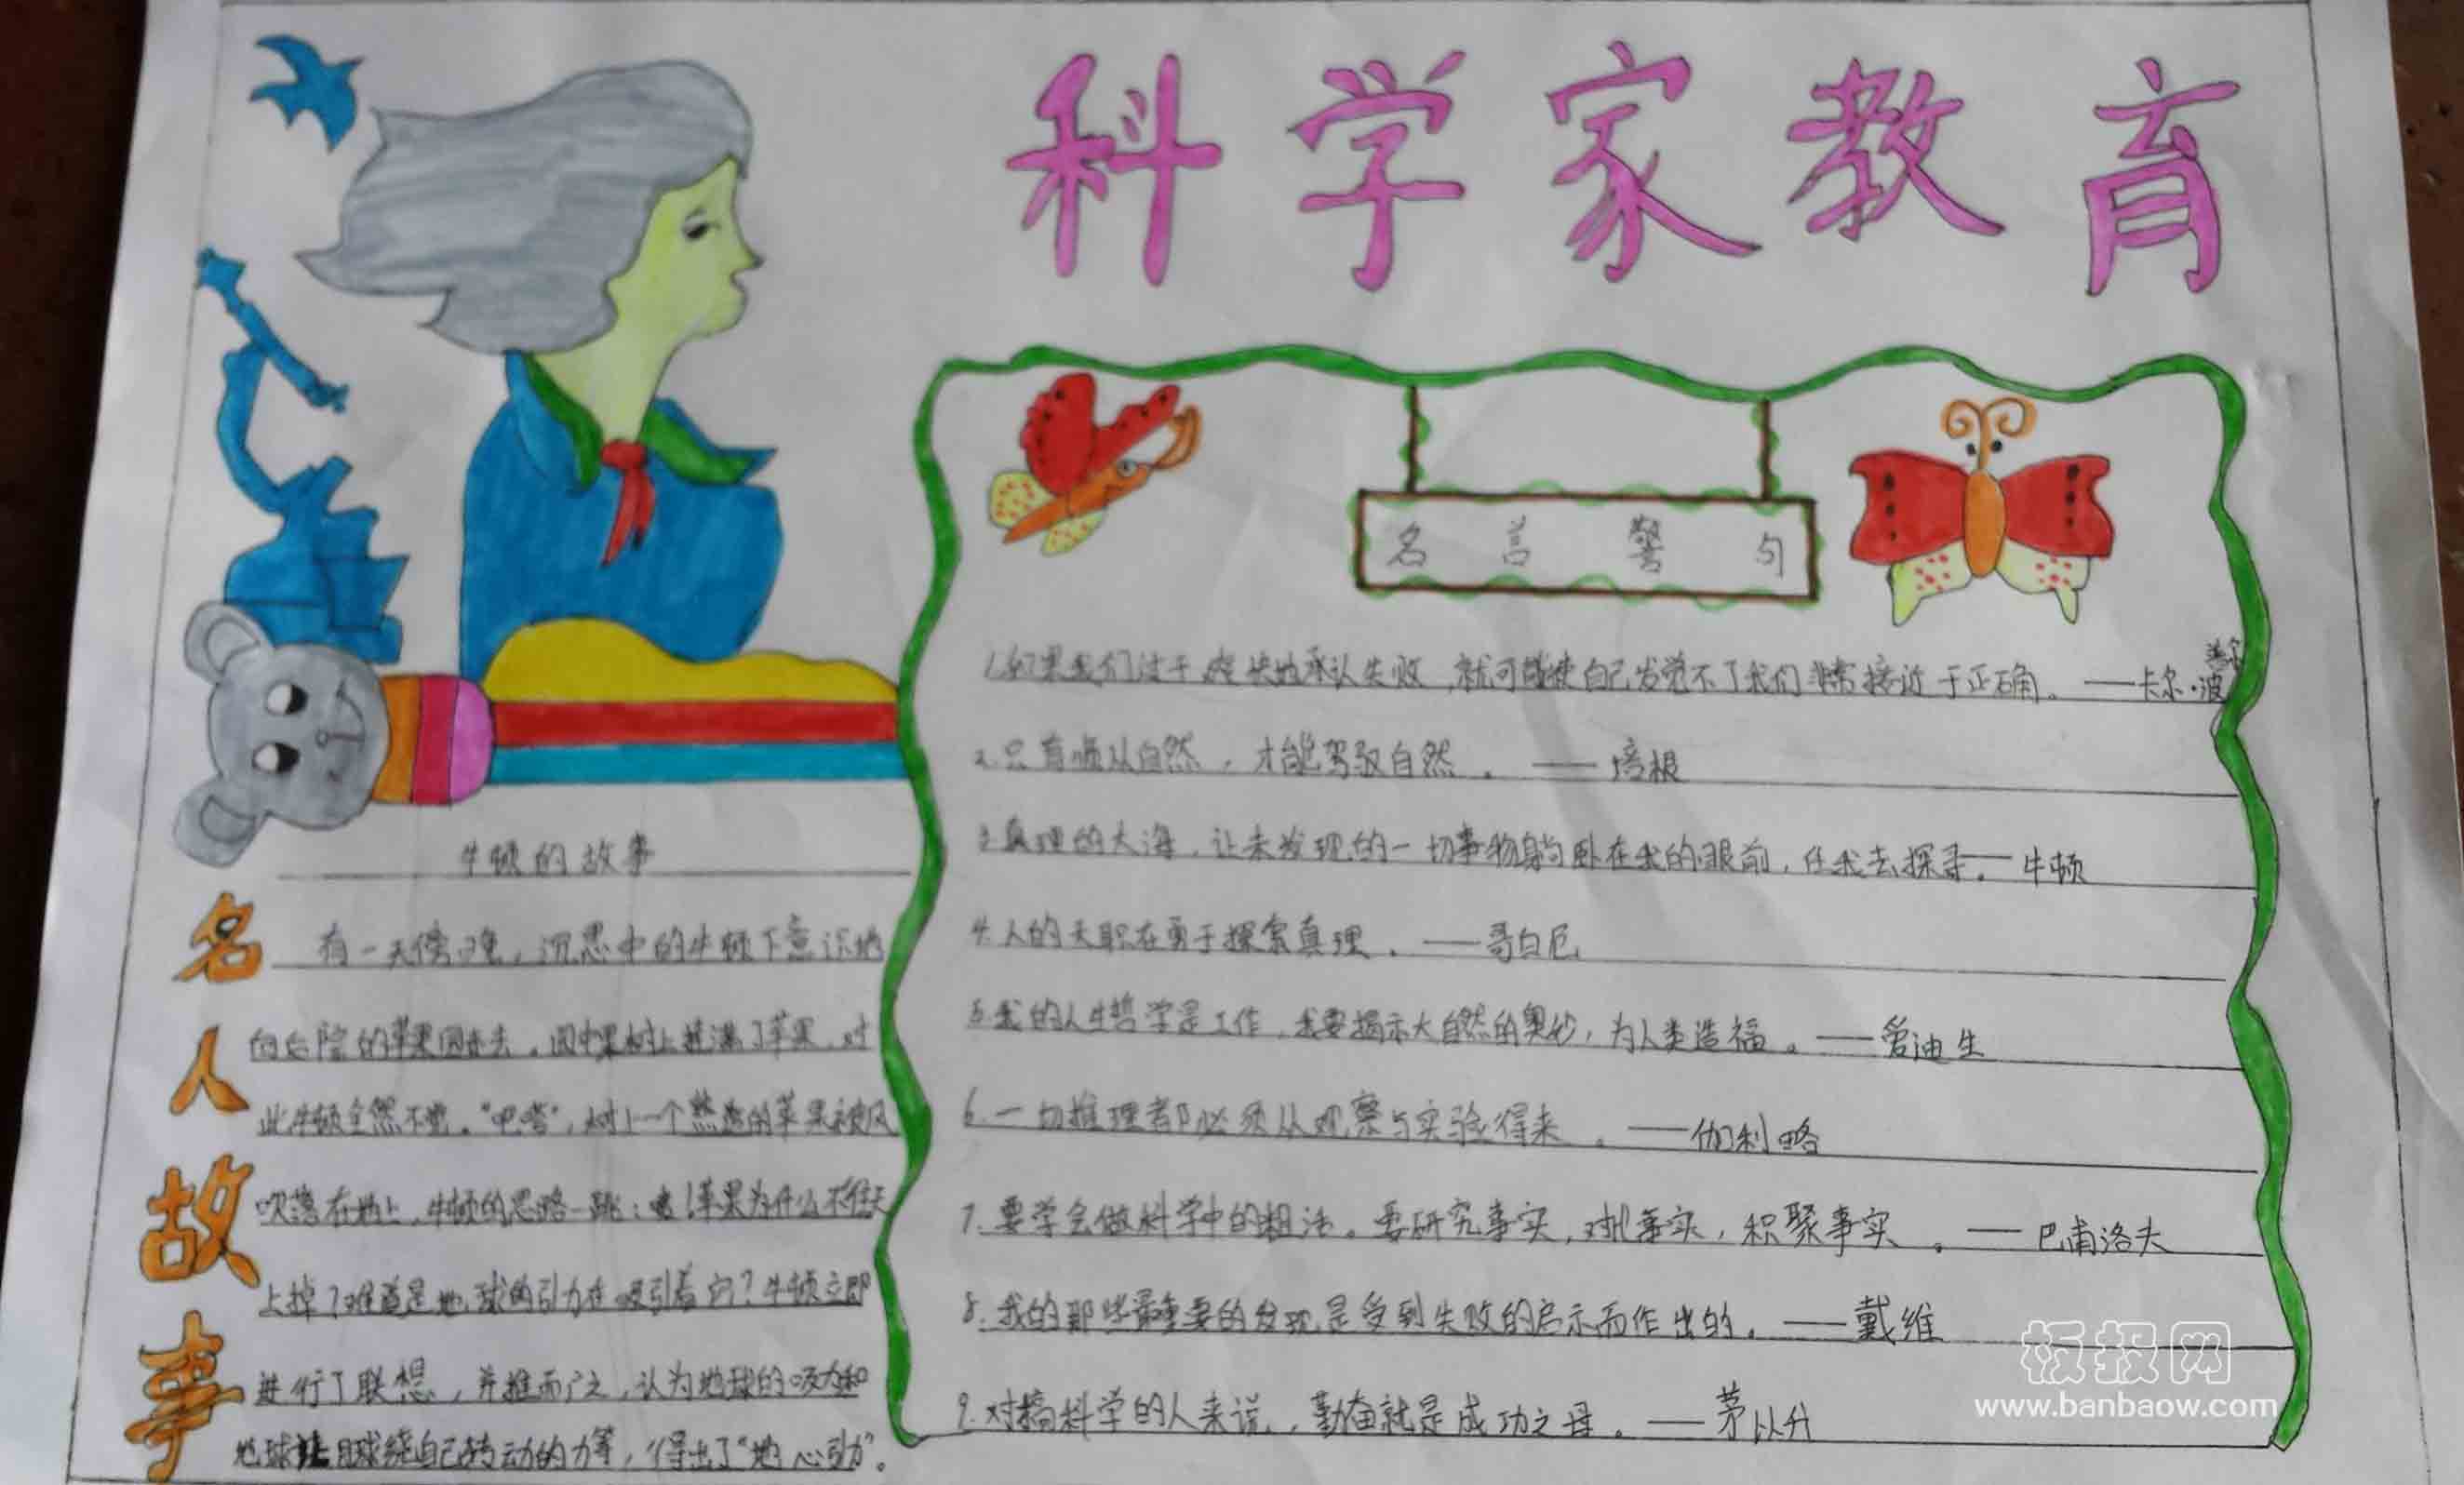 科学家教育
名言警句
1.如果我们过于爽快地承认失败,就可能使自己发觉不了我们非常接近于正确。——卡尔·波普尔
2.只有顺从自然,才能驾驭自然。——培根
3.真理的大海,让未发现的一切事物躺卧在我的眼前,任我去探寻。——牛顿
4.人的天职在勇于探索真理。——哥白尼
5.我的人生哲学是工作,我要揭示大自然的奥妙,为人类造福。——爱迪生
6.一切推理都必须从观察与实验得来。——伽利略
7.要学会做科学中的粗活。要研究事实,对比事实,积聚事实。——巴甫洛夫
8.我的那些最重要的发现是受到失败的启示而作出的。——戴维
9.对搞科学的人来说,勤奋就是成功之母。——茅以升
名人故事
牛顿的故事
有一天傍晚,沉思中的牛顿下意识地
向后院的苹果园走去。园中果树上挂满了苹果,对
此牛顿全然不觉。“吧嗒”,树上一个熟透的苹果被风
吹落在地上,牛顿的思路一跳:噫!苹果为什么不往天
上掉?难道是地球的引力在吸引着它?牛顿立即
进行了联想,并推而广之,认为地球的吸力和
地球让月球绕自己转动的力等,得出了“地心引力”。
板报网
www.banbaow.com